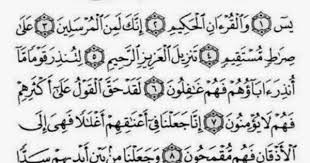 يسٓ ١ وَٱلۡقُرۡءَانِ ٱلۡحَكِيمِ ٢ إِنَّكَ لَمِنَ ٱلۡمُرۡسَلِينَ ٣ عَلَىٰ
صِرَٰطٖ مُّسۡتَقِيمٖ ٤ تَنزِيلَ ٱلۡعَزِيزِ ٱلرَّحِيمِ ٥ لِتُنذِرَ قَوۡمٗا مَّآ
أُنذِرَ ءَابَآؤُهُمۡ فَهُمۡ غَٰفِلُونَ ٦ لَقَدۡ حَقَّ ٱلۡقَوۡلُ عَلَىٰٓ أَكۡثَرِهِمۡ
فَهُمۡ لَا يُؤۡمِنُونَ ٧ إِنَّا جَعَلۡنَا فِيٓ أَعۡنَٰقِهِمۡ أَغۡلَٰلٗا فَهِيَ إِلَى
ٱلۡأَذۡقَانِ فَهُم مُّقۡمَحُونَ ٨ وَجَعَلۡنَا مِنۢ بَيۡنِ أَيۡدِيهِمۡ سَدّٗا